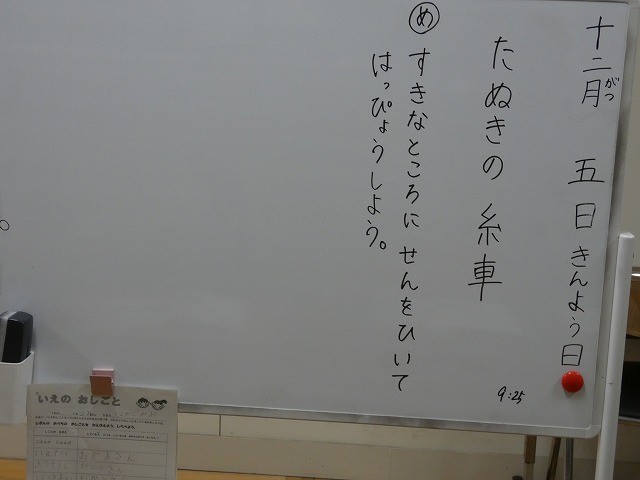 十二月 五日 きんよう日
がつ
たぬきの 糸車
め すきなところに せんをひいて
はっぴょうしよう。
9:25
いえの おしごと